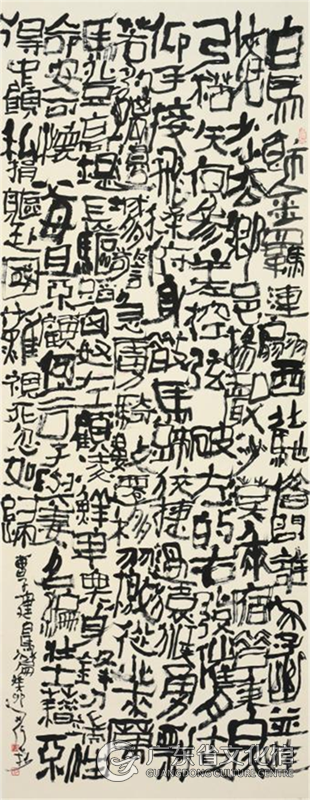 白馬飾金羈連翩西北馳借問誰家子幽並
遊俠兒少小去鄉邑揚聲沙漠垂宿昔秉良
弓楛矢何參差控弦破左的右發摧月支
仰手接飛猱俯身散馬蹄狡捷過猴猿勇剽
若豹螭邊城多警急虜騎數遷移羽檄從北來厲
馬登高堤長驅蹈匈奴左顧凌鮮卑棄身鋒刃端性
命安可懷父母且不顧何言子與妻名編壯士籍不
得中顧私捐軀赴國難視死忽如歸
曹子建白馬篇
广东省文化馆
GUANGDONG PROVINCIAL CULTURAL CENTER